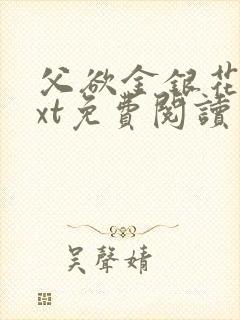 父欲金銀花
xt免費閱讀
吴聲婧